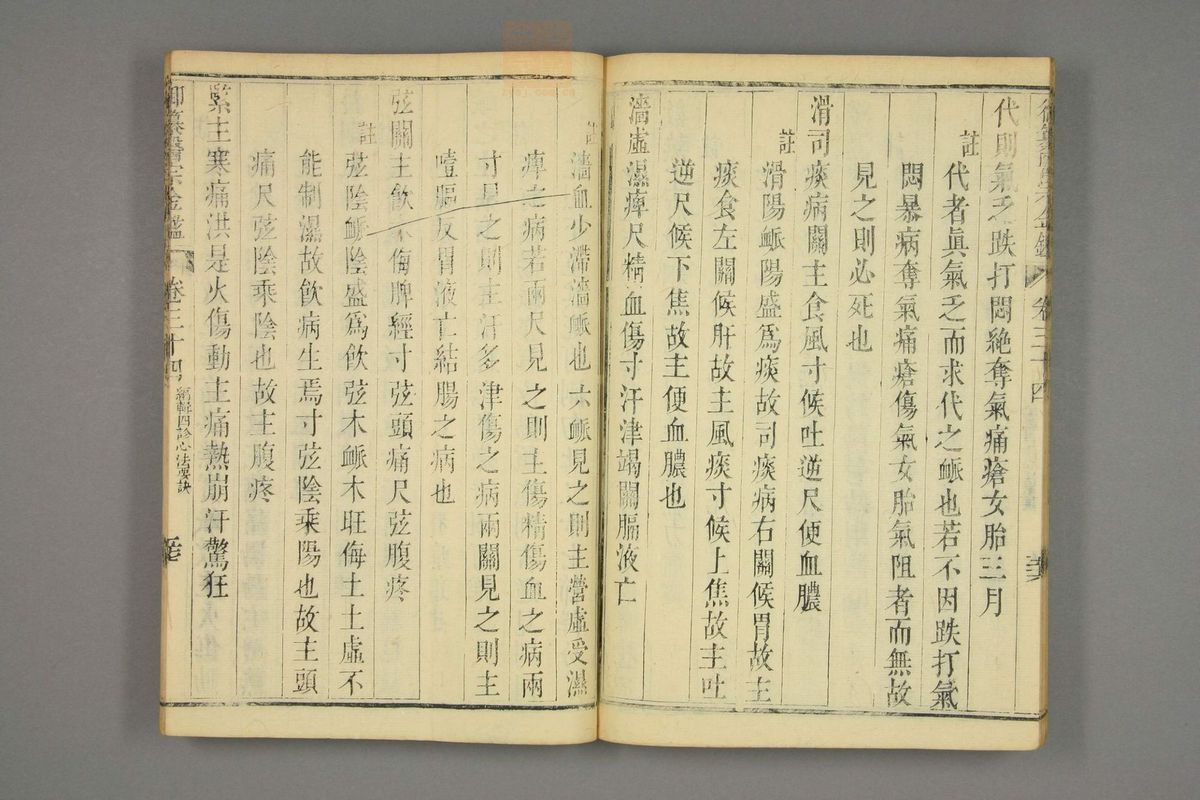 代則氣乏跌打悶絶奪氣痛瘡女胎三月
註
代者眞氣乏而求代之䘑也若不因跌打氣
悶暴病奪氣痛瘡傷氣女胎氣阻者而無故
見之則必死也
滑司痰病關主食風寸候吐逆尺便血膿
註
滑陽䘑陽盛爲痰故司痰病右關候胃故主
痰食左關候肝故主風痰寸候上焦故主吐
逆尺候下焦故主便血膿也
濇虛濕痺尺精血傷寸汗津竭關膈液亡
註
濇血少滯濇䘑也六䘑見之則主營虛受濕
痺之病若兩尺見之則主傷精傷血之病兩
寸見之則主汗多津傷之病兩關見之則主
噎膈反胃液亡結腸之病也
弦關主飮木侮脾經寸弦頭痛尺弦腹疼
註
弦陰䘑陰盛爲飮弦木䘑木旺侮土土虛不
能制濕故飮病生焉寸弦陰乘陽也故主頭
痛尺弦陰乘陰也故主腹疼
緊主寒痛洪是火傷動主痛熱崩汗驚狂
御纂醫宗金鑑 卷三十四 編輯四診心法要訣